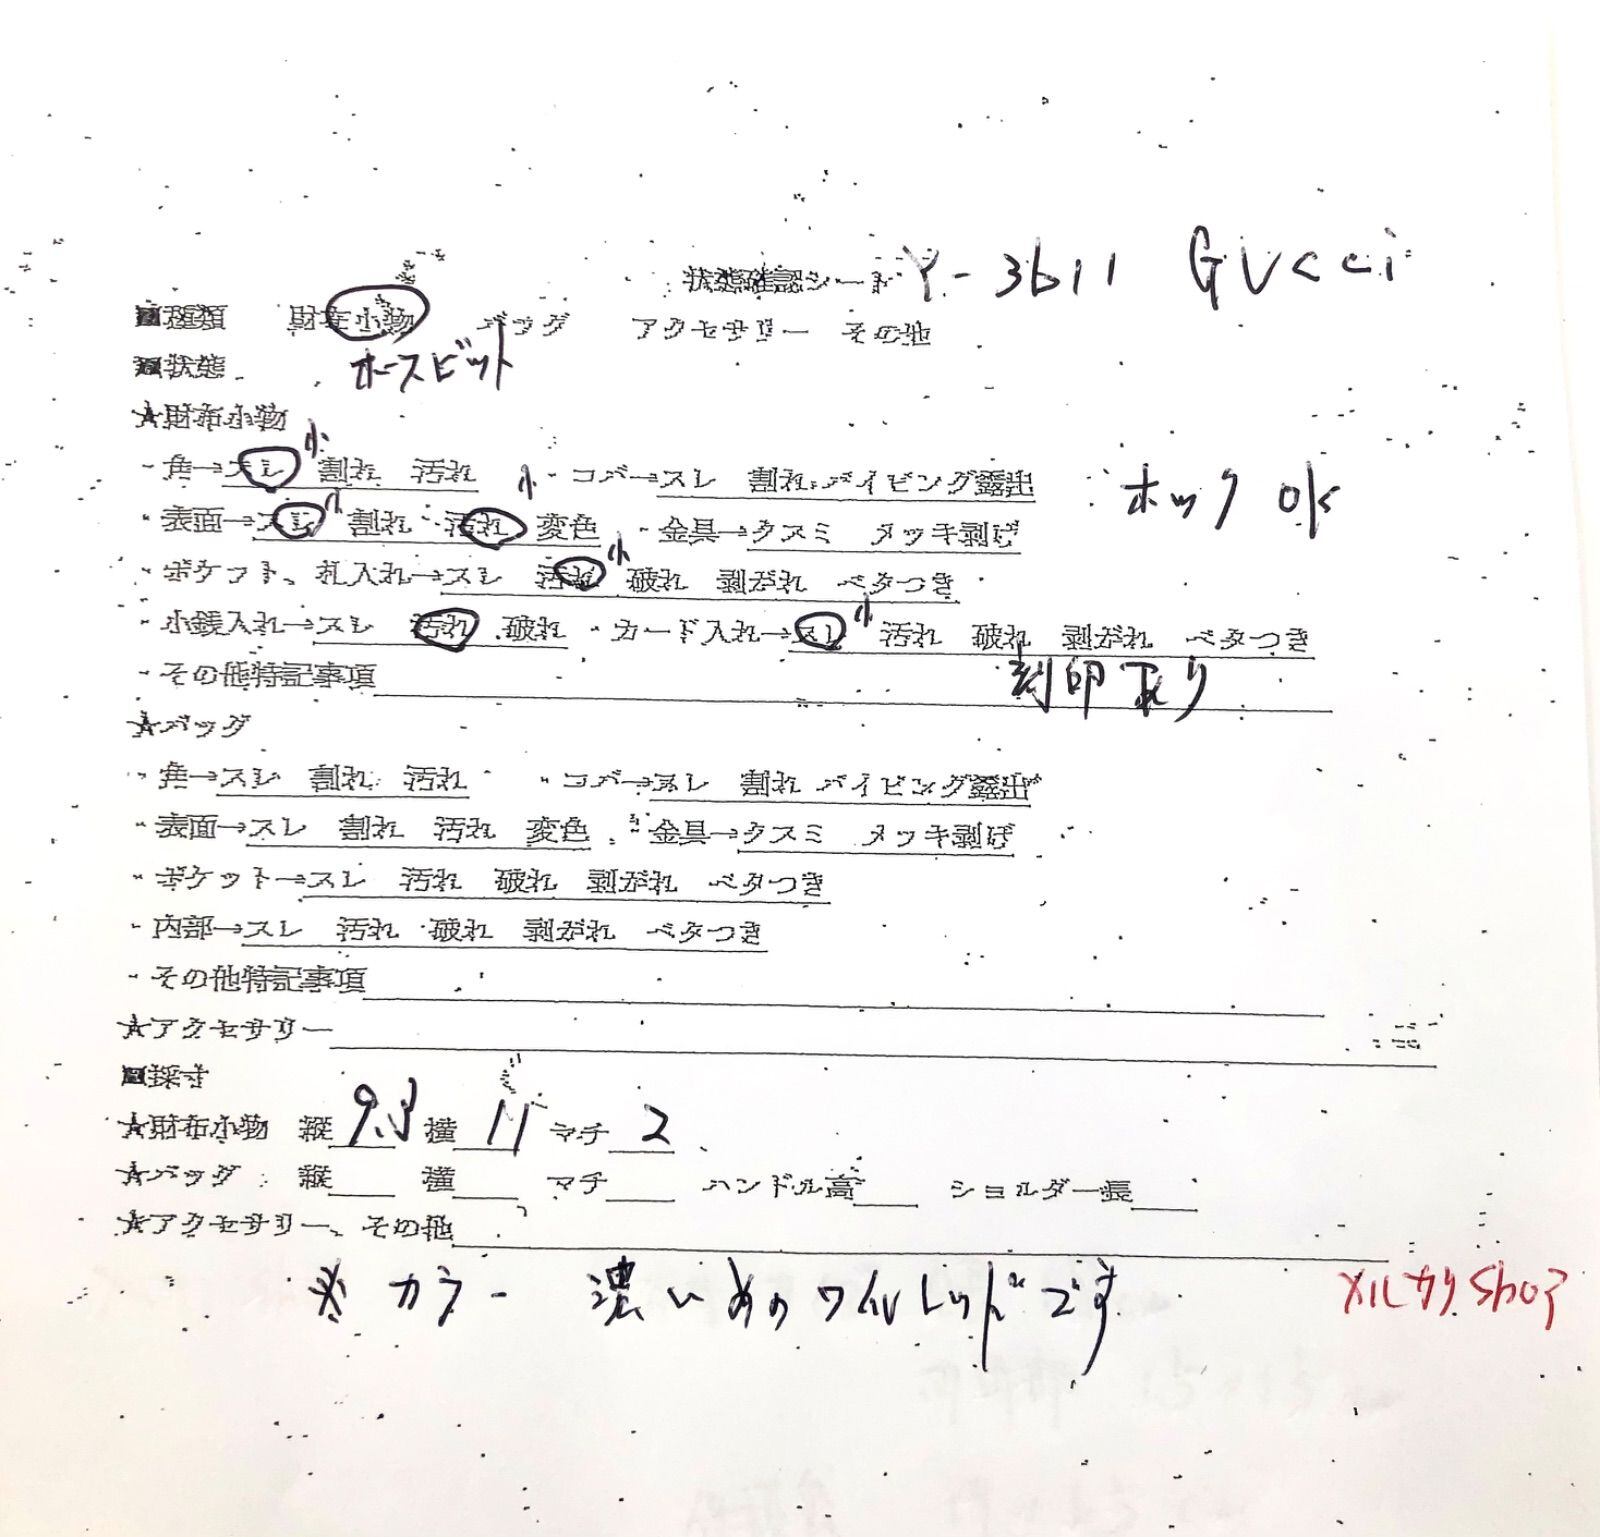 状態確認シート Y-3611 GUCCI
■種類 財布小物 バッグ アクセサリー その他
■状態 ホースビット
★財布小物
・角→スレ 小 割れ 汚れ ・コバ→スレ 割れ パイピング露出 ホック OK
・表面→スレ 小 割れ 汚れ 小 変色 ・金具→クスミ メッキ剥げ
・ポケット、札入れ→スレ 汚れ 小 破れ 剥がれ ベタつき
・小銭入れ→スレ 汚れ 破れ ・カード入れ→スレ 小 汚れ 破れ 剥がれ ベタつき
・その他特記事項 刻印 あり
★バッグ
・角→スレ 割れ 汚れ ・コバ→スレ 割れ パイピング露出
・表面→スレ 割れ 汚れ 変色 ・金具→クスミ メッキ剥げ
・ポケット→スレ 汚れ 破れ 剥がれ ベタつき
・内部→スレ 汚れ 破れ 剥がれ ベタつき
・その他特記事項
★アクセサリー
■採寸
★財布小物 縦 9.5 横 11 マチ 2
★バッグ 縦 横 マチ ハンドル高 ショルダー長
★アクセサリー、その他
※ カラー 濃いめのワインレッドです メルカリshop